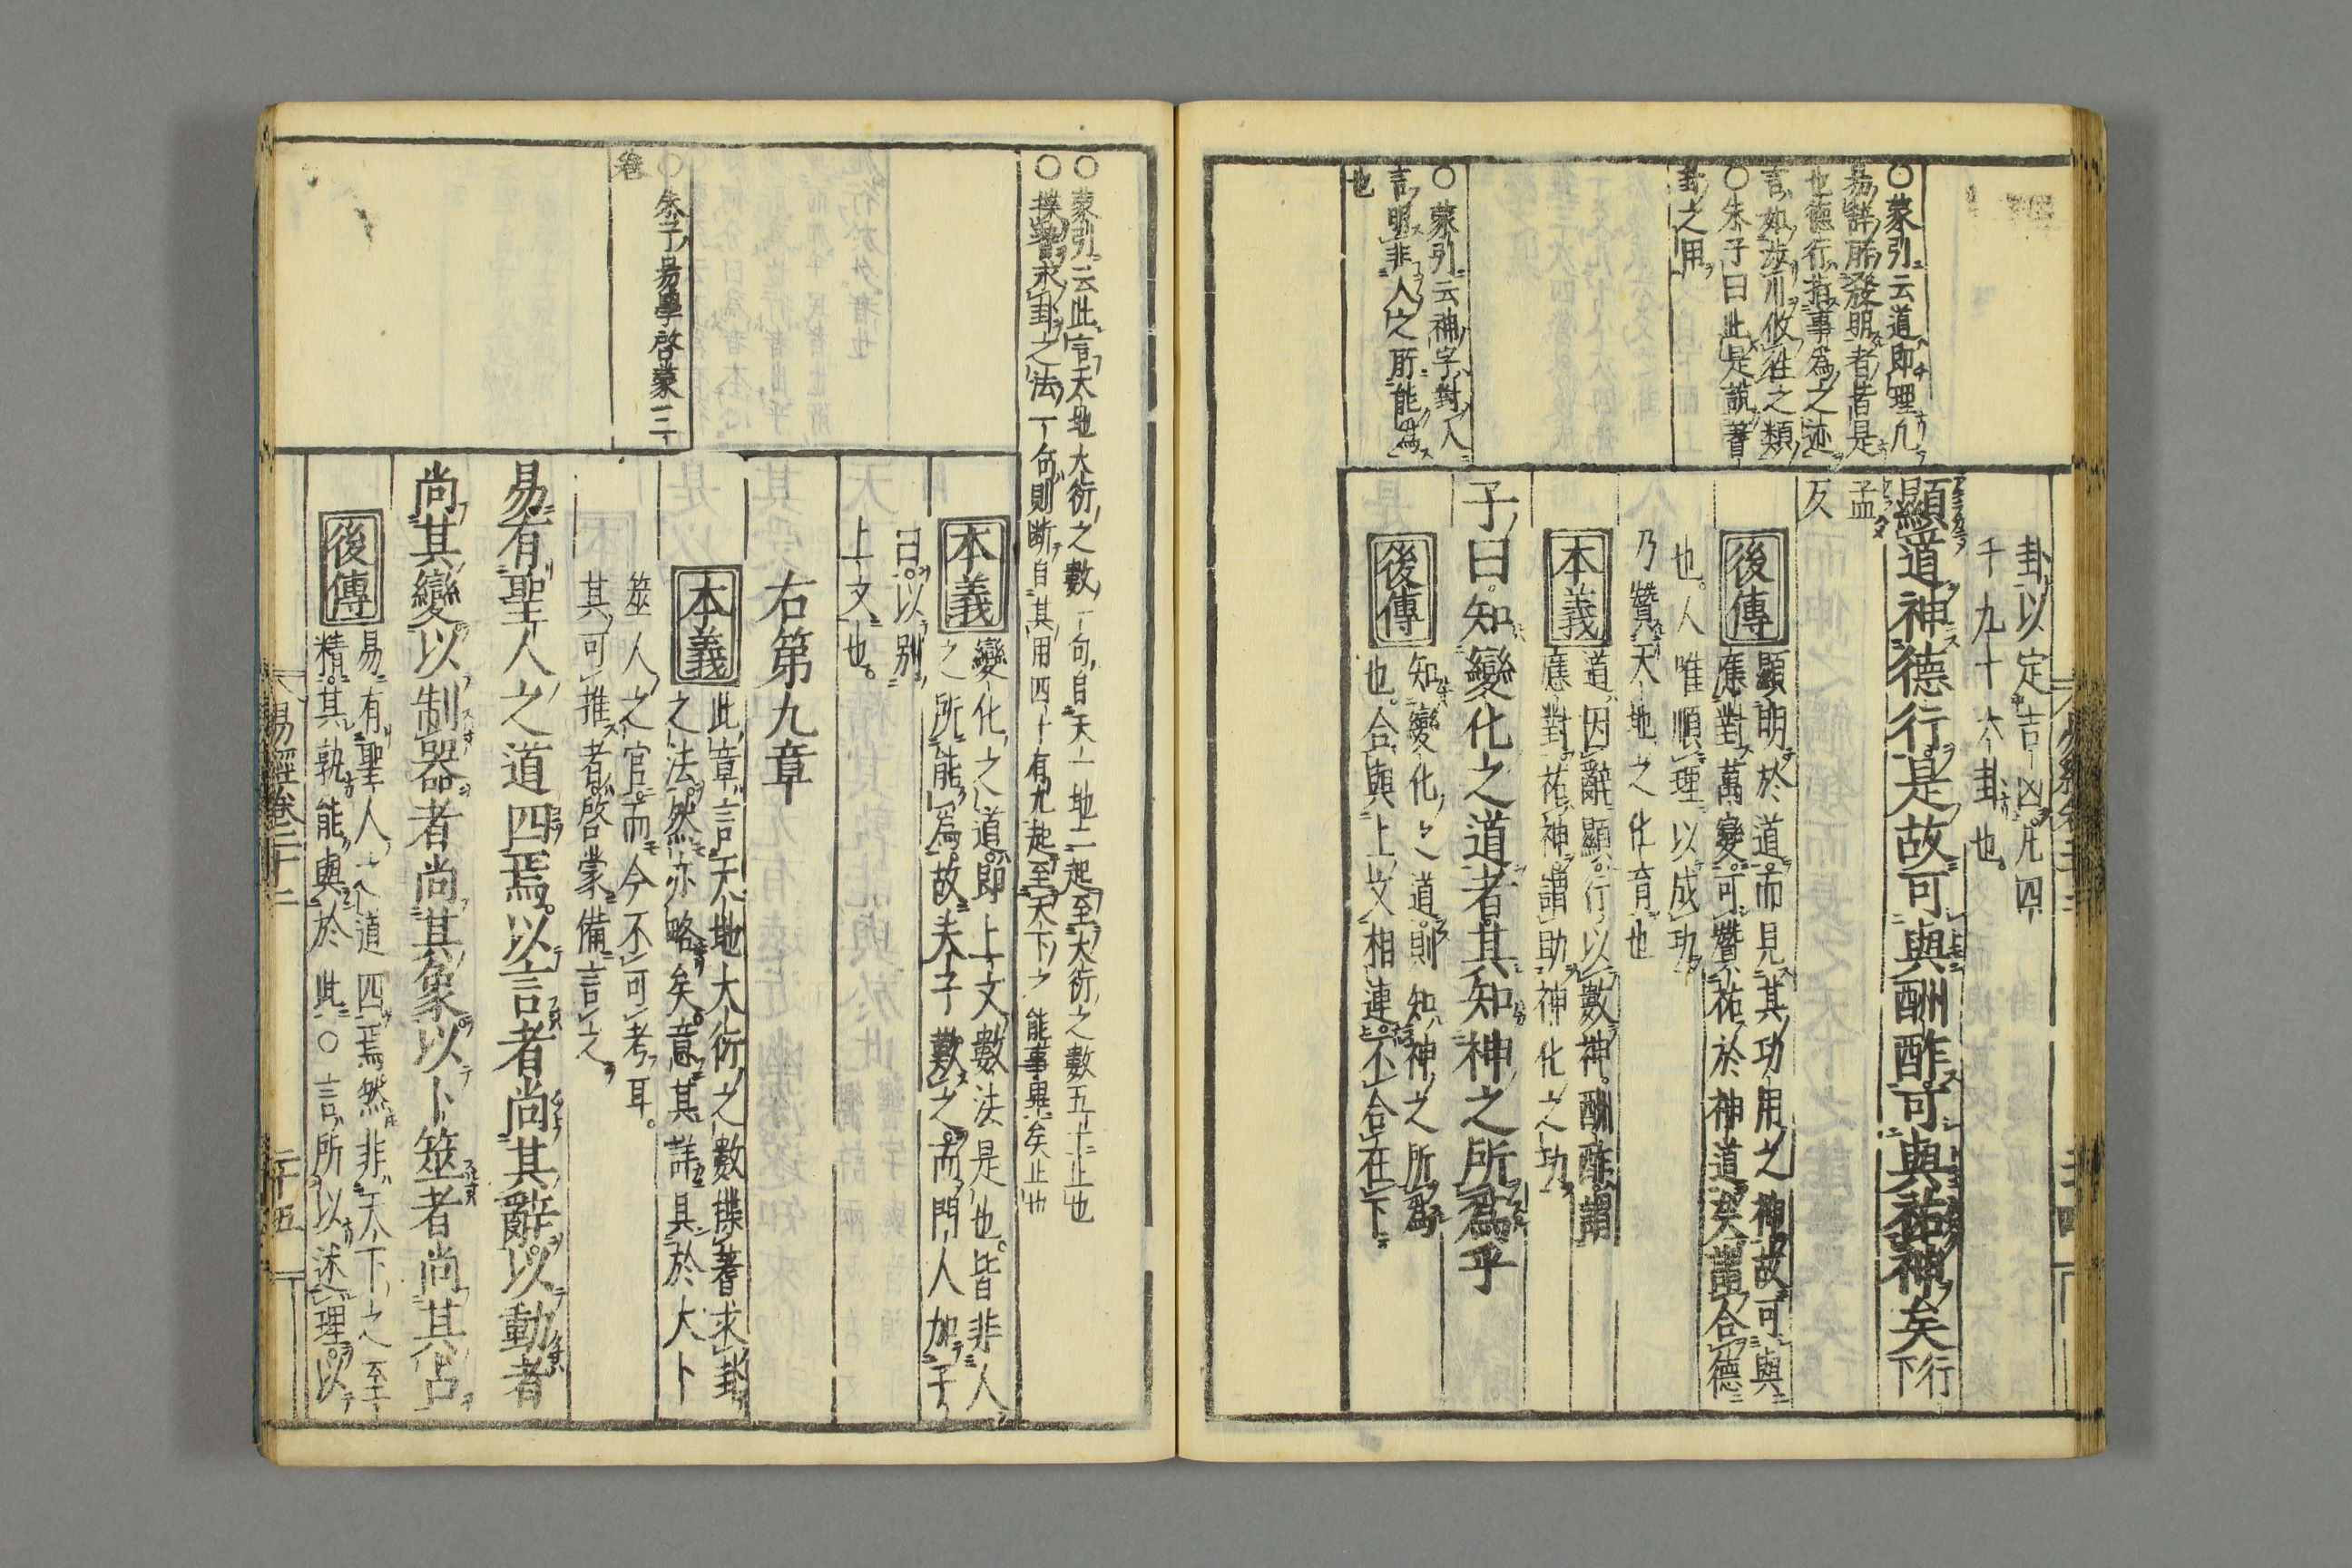 卦以定吉凶凡四
千九十六卦也
顯道神德行是故可與酬酢可與祐神矣行下
孟
反
後傳
顯明於道而見其功用之神故可與
應對萬變可贊祐於神道矣謂合德
也人唯順理以成功
乃贊天地之化育也
本義
道因辭顯行以數神酬酢謂
應對祐神謂助神化之功
子曰知變化之道者其知神之所爲乎
後傳
知變化之道則知神之所爲
也合與上文相連不合在下
○蒙引云道即理凡
易辞所發明者皆是
也德行指事為之迹
言如渉川攸往之類
○朱子曰此是說蓍
卦之用
○蒙引云神字對人
言明非人之所能為
也
○蒙引云此言天地大衍之數一句自天一地二起至大衍之數五十止也
○揲蓍求卦之法一句則断自其用四十有九起至天下之能事畢矣止也
本義
變化之道即上文數法是也皆非人
之所能爲故夫子歎之而門人加子
曰以別
上文也
右第九章
本義
此章言天地大衍之數揲蓍求卦
之法然亦略矣意其詳具於大卜
筮人之官而今不可考耳
其可推者啓蒙備言之
○朱子易學啓蒙三
巻
易有聖人之道四焉以言者尚其辭以動者
尚其變以制器者尚其象以卜筮者尚其占
後傳
易有聖人之道四焉然非天下之至
精其孰能與於此○言所以述理以
易經卷二十二
二十五